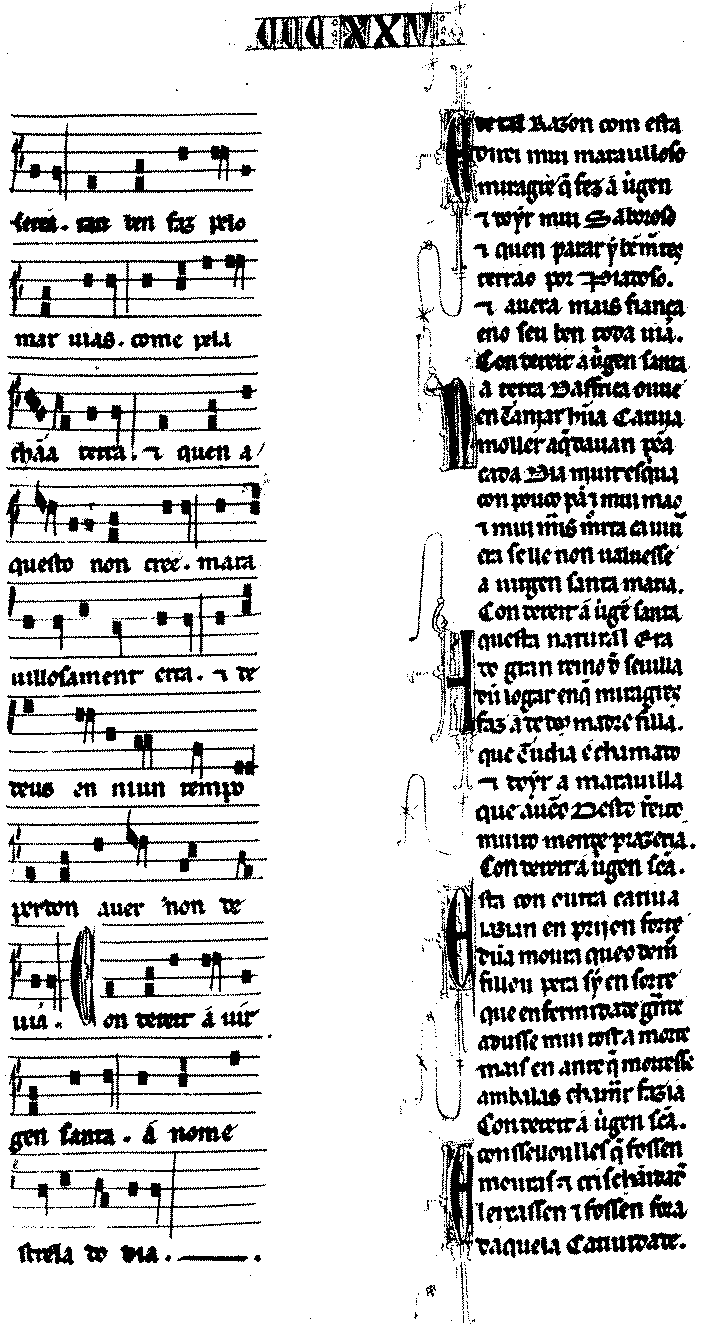 CCC XXV
serrá. tant ben faz pelo
mar uias. come pela
cháa terra. ⁊ quen a
questo non cree. mara
uillosament erra. ⁊ de
deus en niun tempo
perdon auer non de
uiá.
Con dereit á uir
gen santa. á nome
strela do dia.
E de tal razon com esta
uos direi mui marauilloso
miragre q̃ fez á uĩgen
⁊ doỹr mui saboroso
⁊ quen parar ỹ
terrao por piadoso.
⁊ auera mais fiança
eno seu ben toda uia.
Con dereit a uĩgen santa
a terra daffrica ouue
en Tanjar hũa catiua
moller a q̃ dauan pẽa
cada dia muit esq̃ua
con pouco pã ⁊ mui mao
⁊ mui
era se lle non ualuesse
a uirgen santa maria.
Con dereit á uĩgẽ santa
questa natural era
do gran reino d̃ seuilla
dũ logar en q̃ miragres
faz a de do madre filla.
que Tudia é chamado
⁊ doỹr a marauilla
que auẽo desto feito
muito mente prazeria.
Con dereit á uĩgen scã.
Esta con outra catiua
iazian en prijon forte
dũa moura que o dem̃
fillou pera sỹ en sorte
que enfermidade
aduisse mui tost a morte
mais en ante q̃ morresse
ambalas chamar fazia
Con dereit á uĩgen scã.
E consellou lles q̃ fossen
mouras ⁊ crischãidade
leixassen ⁊ fossen fora
daquela catiuidade.